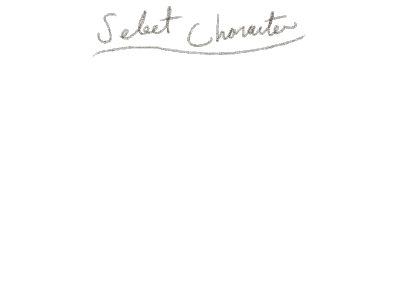 Select Character